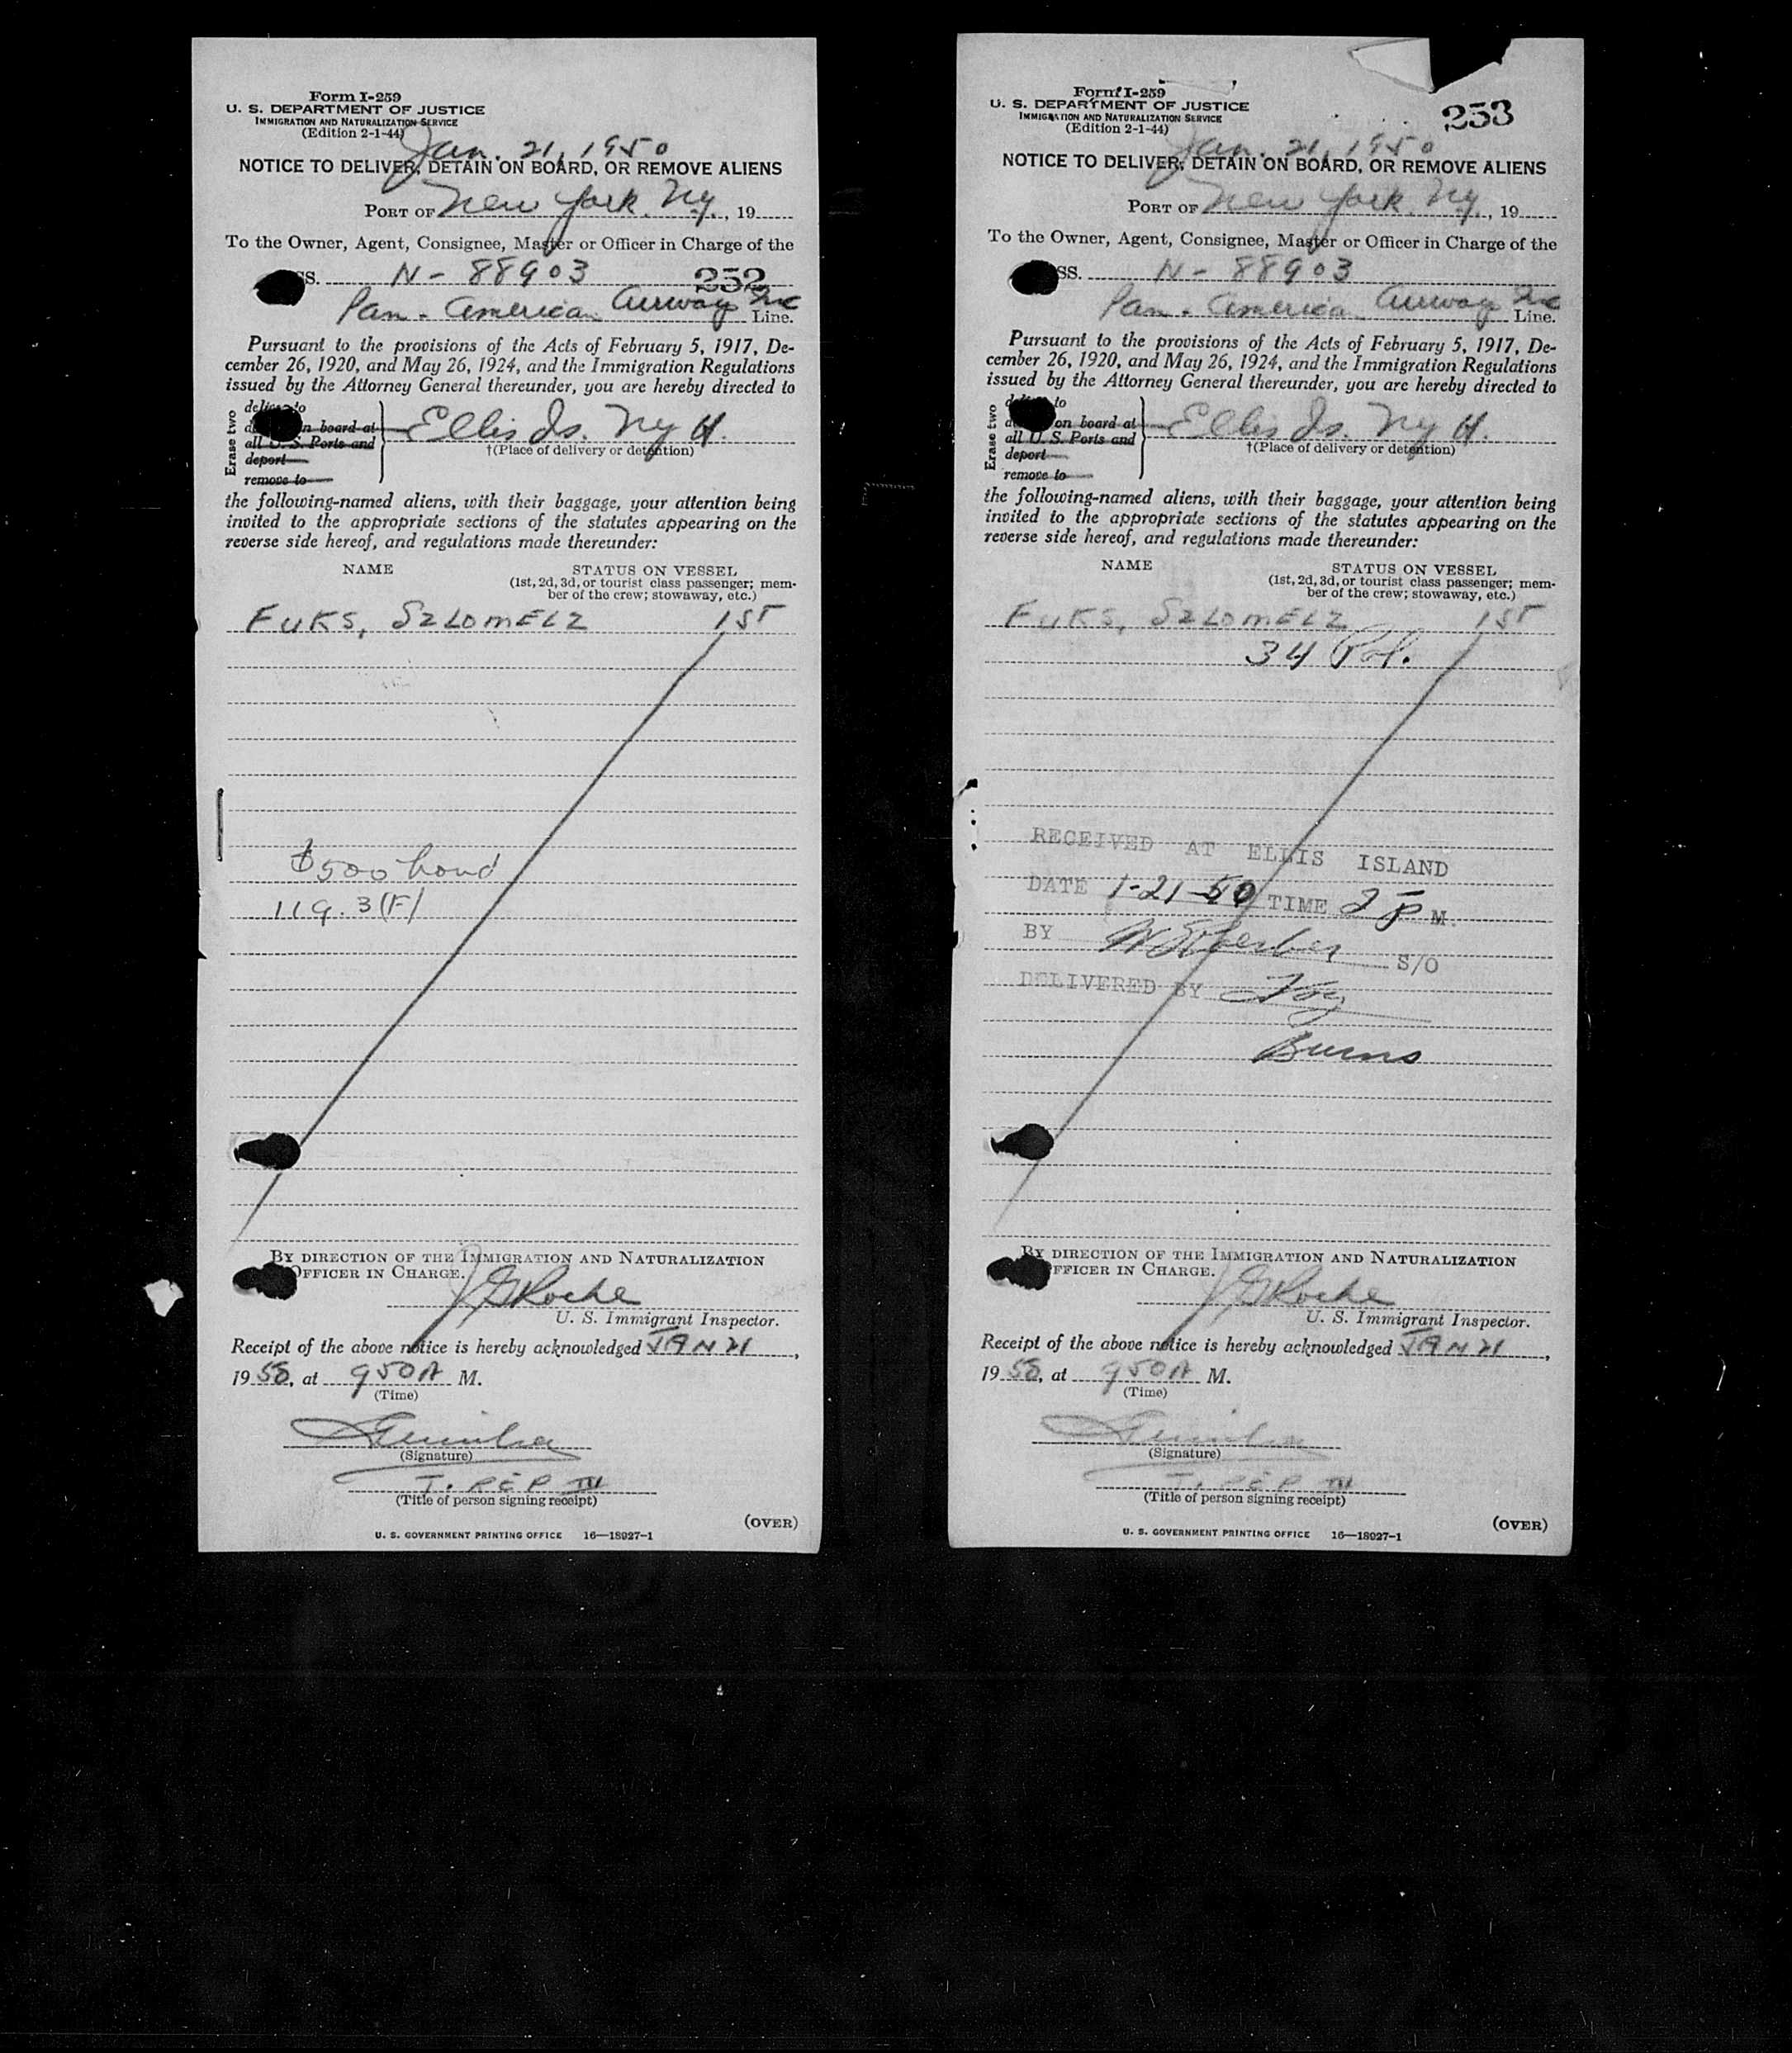 Form I-259
U. S. DEPARTMENT OF JUSTICE
IMMIGRATION AND NATURALIZATION SERVICE
(Edition 2-1-44)
Jan. 21, 1950
NOTICE TO DELIVER, DETAIN ON BOARD, OR REMOVE ALIENS
PORT OF New York. Ny., 19
To the Owner, Agent, Consignee, Master or Officer in Charge of the
SS. N- 88903 252
Pan. American Airway Inc
Line.
Pursuant to the provisions of the Acts of February 5, 1917, De-
cember 26, 1920, and May 26, 1924, and the Immigration Regulations
issued by the Attorney General thereunder, you are hereby directed to
Erase two
deliver to
on board at
all U. S. Ports and
deport
remove to
Ellis Is. Ny H.
†(Place of delivery or detention)
the following-named aliens, with their baggage, your attention being
invited to the appropriate sections of the statutes appearing on the
reverse side hereof, and regulations made thereunder:
NAME STATUS ON VESSEL
(1st, 2d, 3d, or tourist class passenger; mem-
ber of the crew; stowaway, etc.)
FUKS, SZLOMELZ 1ST
$500 bond
119. 3(F)
BY DIRECTION OF THE IMMIGRATION AND NATURALIZATION
OFFICER IN CHARGE.
Roche
U. S. Immigrant Inspector.
Receipt of the above notice is hereby acknowledged JAN 21,
1950, at 950A M.
(Time)
(Signature)
T. REP III
(Title of person signing receipt)
(OVER)
U. S. GOVERNMENT PRINTING OFFICE 16—18927-1
Form I-259
U. S. DEPARTMENT OF JUSTICE
IMMIGRATION AND NATURALIZATION SERVICE
(Edition 2-1-44)
253
Jan. 21, 1950
NOTICE TO DELIVER, DETAIN ON BOARD, OR REMOVE ALIENS
PORT OF New York. Ny., 19
To the Owner, Agent, Consignee, Master or Officer in Charge of the
SS. N- 88903
Pan. American Airway Inc
Line.
Pursuant to the provisions of the Acts of February 5, 1917, De-
cember 26, 1920, and May 26, 1924, and the Immigration Regulations
issued by the Attorney General thereunder, you are hereby directed to
Erase two
to
on board at
all U. S. Ports and
deport
remove to
Ellis Is. Ny H.
†(Place of delivery or detention)
the following-named aliens, with their baggage, your attention being
invited to the appropriate sections of the statutes appearing on the
reverse side hereof, and regulations made thereunder:
NAME STATUS ON VESSEL
(1st, 2d, 3d, or tourist class passenger; mem-
ber of the crew; stowaway, etc.)
FUKS, SZLOMELZ 1ST
34 Pol.
RECEIVED AT ELLIS ISLAND
DATE 1-21-50 TIME 2 P M.
BY S/O
DELIVERED BY
Burns
BY DIRECTION OF THE IMMIGRATION AND NATURALIZATION
OFFICER IN CHARGE.
Roche
U. S. Immigrant Inspector.
Receipt of the above notice is hereby acknowledged JAN 21,
1950, at 950A M.
(Time)
(Signature)
T. REP III
(Title of person signing receipt)
(OVER)
U. S. GOVERNMENT PRINTING OFFICE 16—18927-1